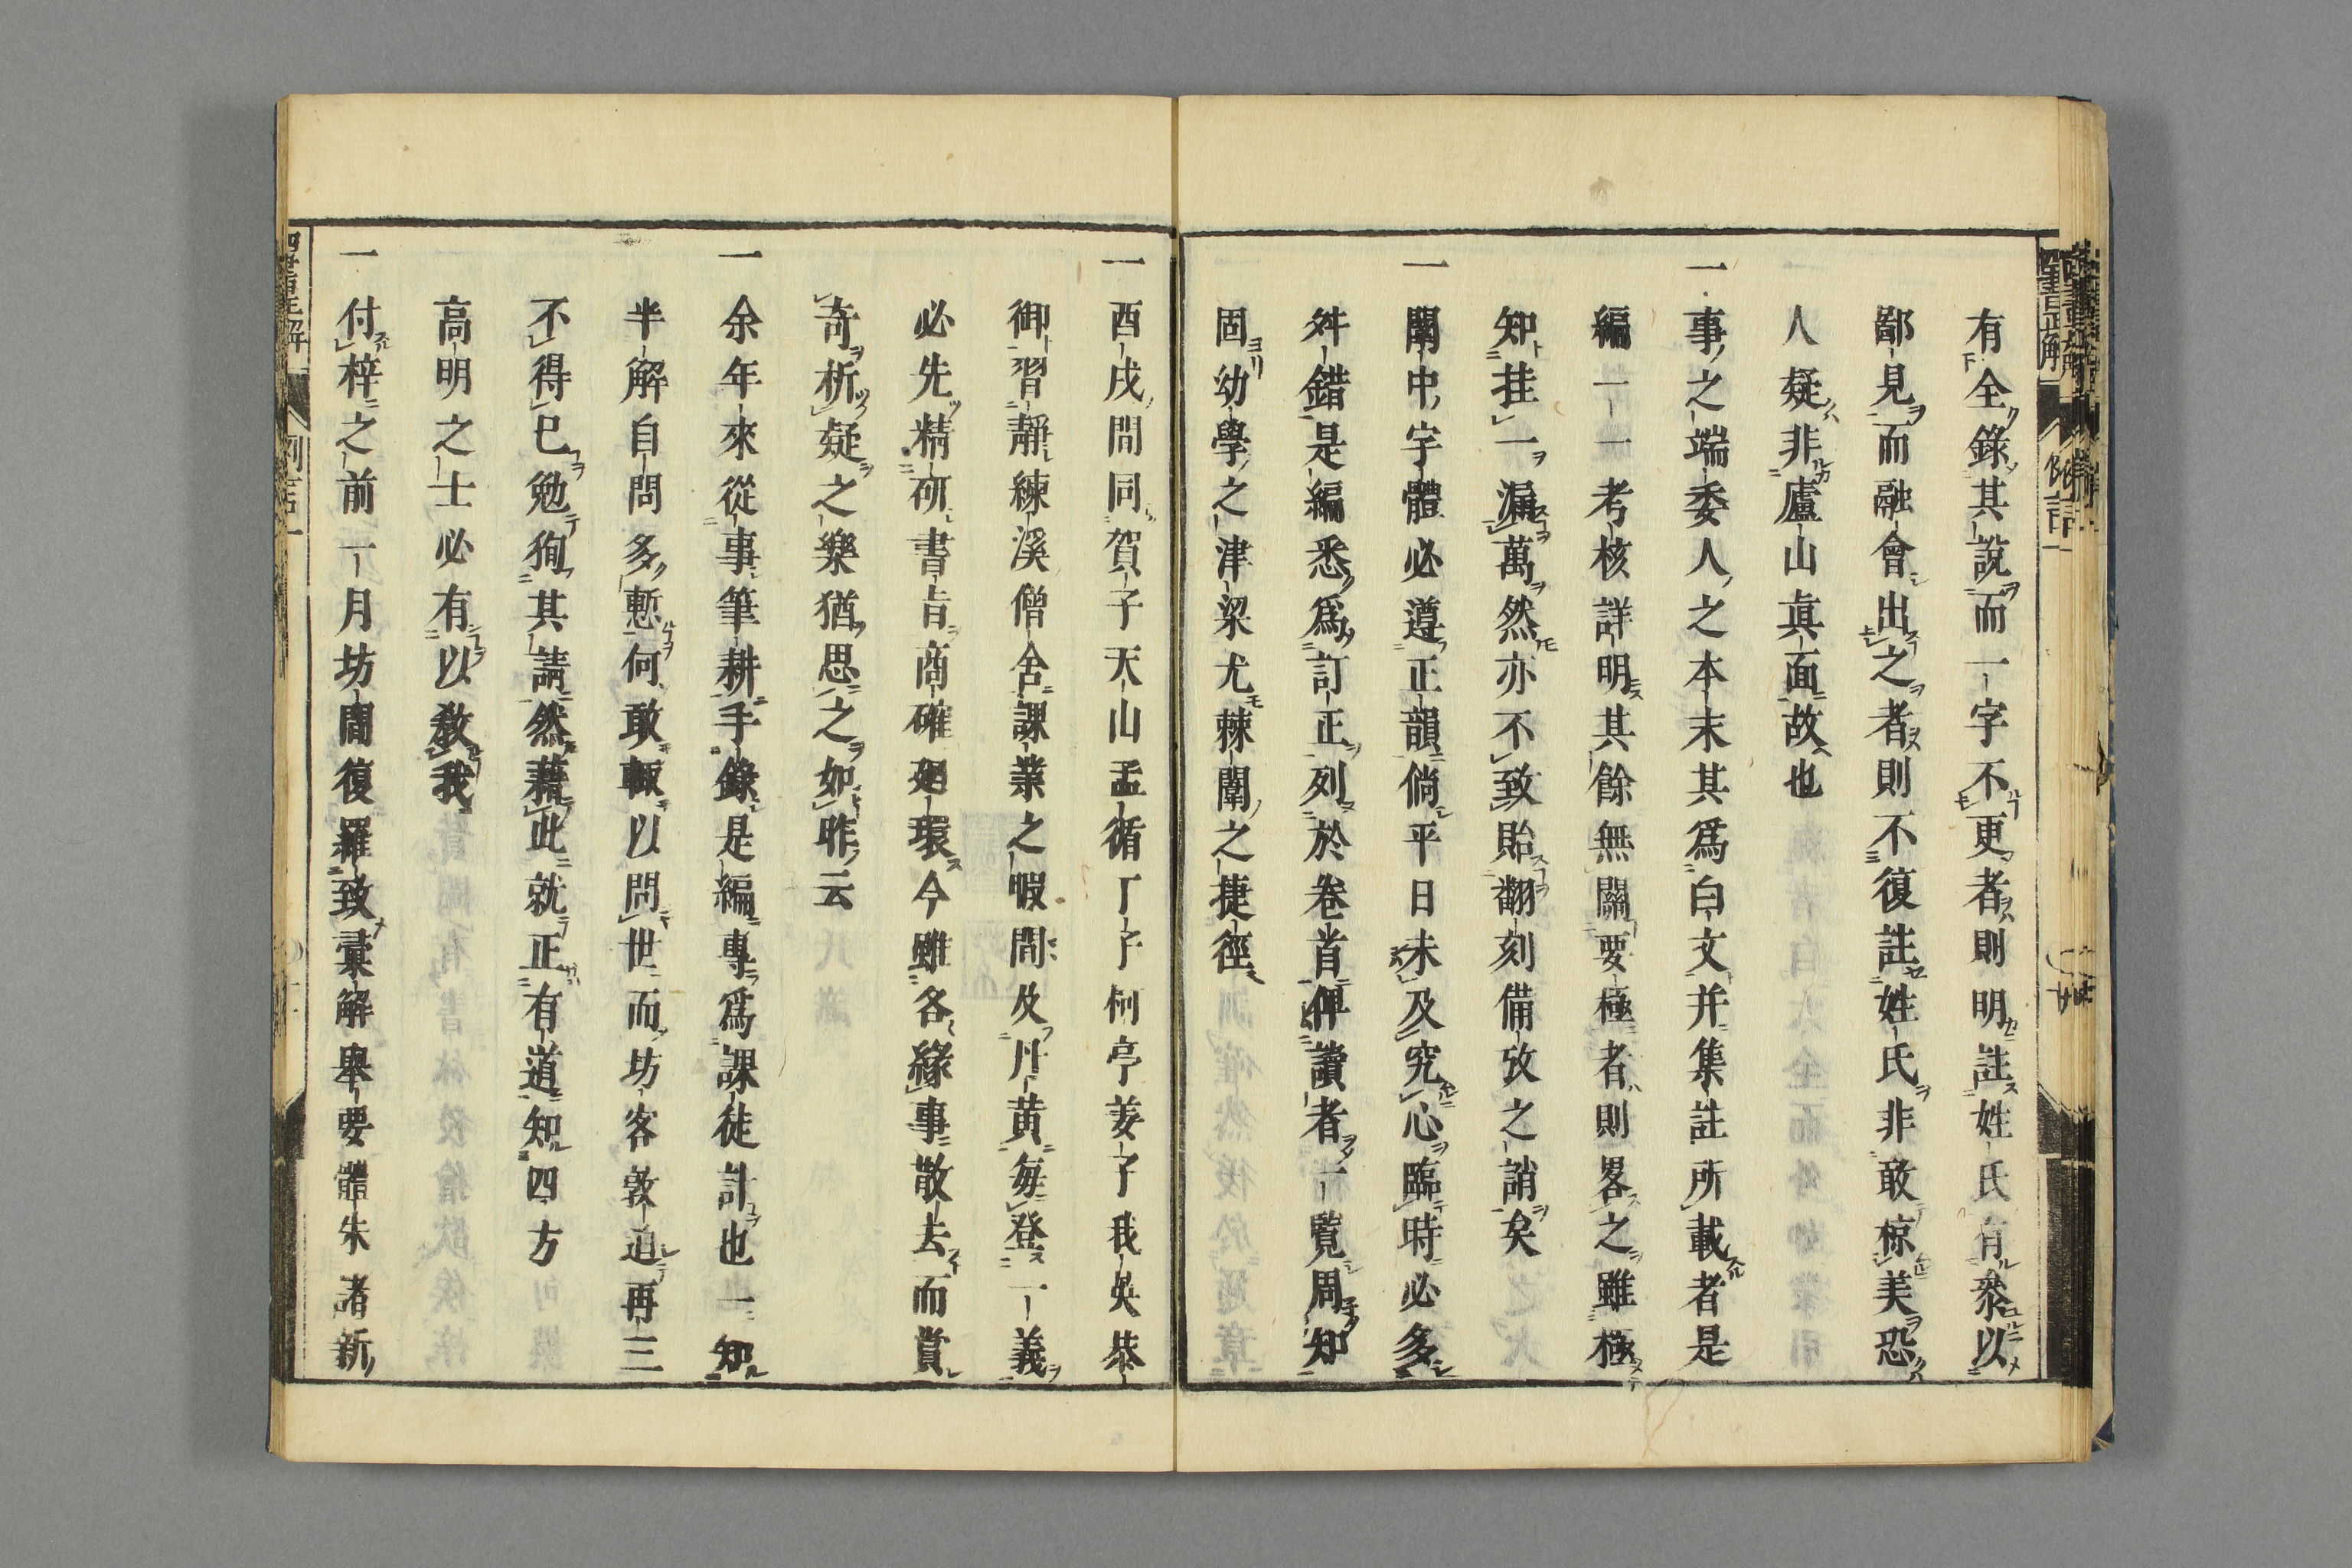 有全錄其說而一字不更者則明註姓氏有叅以
鄙見而融會出之者則不復註姓氏非敢椋美恐
人疑非廬山眞面故也
一事之端委人之本末其爲白文并集註所載者是
編一一考核詳明其餘無關要極者則畧之雖極
知挂一漏萬然亦不致貽翻刻備攷之誚矣
一闈中字體必遵正韻倘平日未及究心臨時必多
舛錯是編悉爲訂正列於卷首俾讀者一覽周知
固幼學之津梁尤棘闈之捷徑
一酉戌間同賀子天山孟循丁子柯亭姜子我英恭
御習靜練溪僧舍課業之暇間及丹黄每登一義
必先精研書旨商確廻環今雖各緣事散去而賞
奇析疑之樂猶思之如昨云
一余年來從事筆耕手錄是編專爲課徒計也一知
半解自問多慙何敢輙以問世而坊客敦迫再三
不得已勉狥其請然藉此就正有道知四方
高明之士必有以敎我
一付梓之前一月坊間復羅致彚解舉要體朱諸新
四書正解
例言